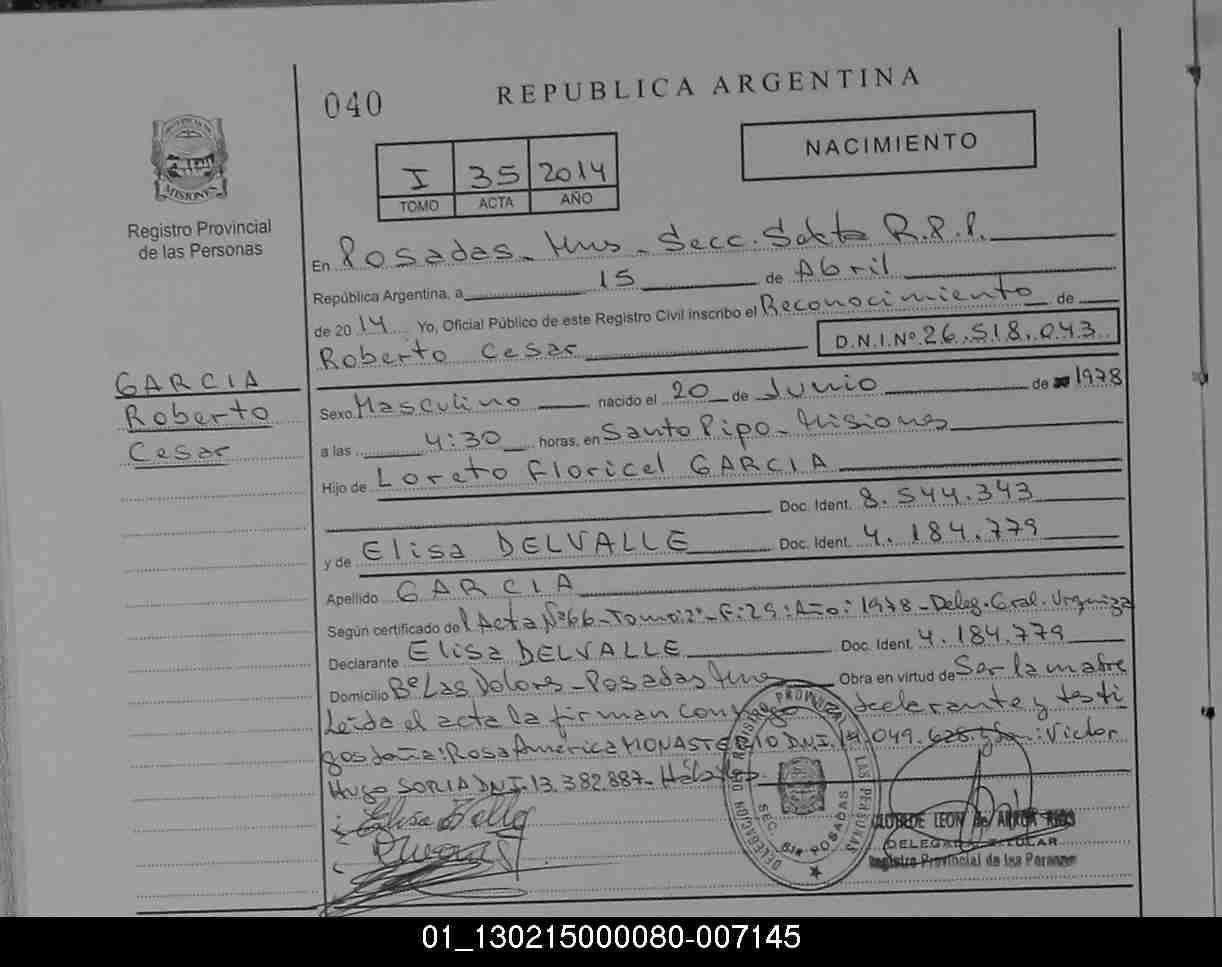 040
REPUBLICA ARGENTINA
NACIMIENTO
I 35 2014
TOMO ACTA AÑO
MISIONES
Registro Provincial
de las Personas
En Posadas - Mns - Secc. Sexta R.P.P.
República Argentina, a 15 de Abril
de 2014 Yo, Oficial Público de este Registro Civil inscribo el Reconocimiento de
Roberto Cesar D.N.I. Nº 26.518.043
GARCIA
Roberto
Cesar
Sexo Masculino nacido el 20 de Junio de 1978
a las 4:30 horas, en Santo Pipo - Misiones
Hijo de Loreto Floricel GARCIA
Doc. Ident. 8.544.343
y de Elisa DELVALLE Doc. Ident. 4.184.779
Apellido GARCIA
Según certificado del Acta Nº 66 - Tomo: 2º - F: 29 : Año: 1978 - Deleg. Gral. Urquiza
Declarante Elisa DELVALLE Doc. Ident. 4.184.779
Domicilio Bº Las Dolores - Posadas Mns Obra en virtud de Ser la madre
Leida el acta la firman conmigo declarante y testi
gos doña: Rosa América MONASTERIO D.N.I. 14.049.628 y Don: Victor
Hugo SORIA DNI. 13.382.887-
DELEGACION DEL REGISTRO PROVINZAL LAS PERSONAS
SEC. 6ta POSADAS
DELEGADO TITULAR
Registro Provincial de las Personas
01_130215000080-007145